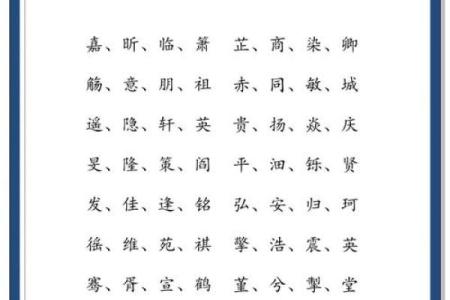 嘉、昕、临、萧 芷、商、染、卿
觞、意、朋、祖 赤、同、敏、城
遥、隐、轩、英 贵、扬、焱、庆
旻、隆、策、阎 平、沺、铄、贤
发、佳、逢、铭 弘、安、归、珂
徭、维、苑、祺 擎、浩、震、英
骞、胥、宣、鹤 堇、兮、犁、堂